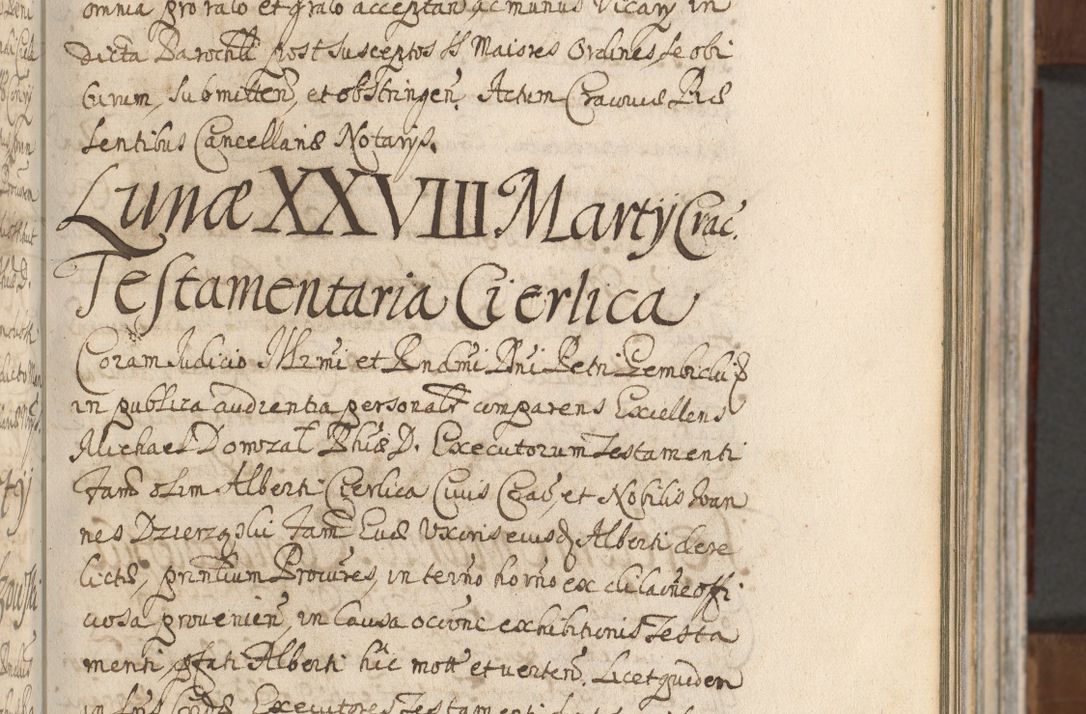 omnia pro rato et grato acceptan ac munus Vicarij in
dicta Parochli post susceptos SS Maiores Ordines, se obi
turum, submitten, et obstringen. Actum Cracouiæ Præ
sentibus Cancellariæ Notarijs.
Lunæ XXVIII Martij Crac.
Testamentaria Cierlica
Coram Judicio Illrmi et Rndmi Dni Petri Gembicki Ep
in publica audientia personalr comparens Excellens
Michael Domozal Phiæ D. Executorum Testamenti
fam olim Alberti Cierlica Ciuis Crac, et Nobilis Joan
nes Dzierzgski fam Euæ Uxoris eiusd Alberti dere
lictæ, principalium Procures, in termo horno ex dilacne offi
ciosa prouenien, in causa occone exhibitionis Testa
menti, pfati Alberti hic mott et verten. Licet quidem
in Executores Testamenti